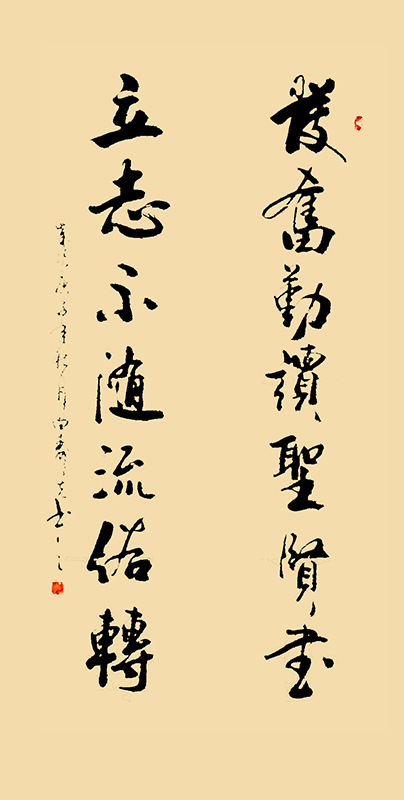 發奮勤讀聖賢書
立志不隨流俗轉